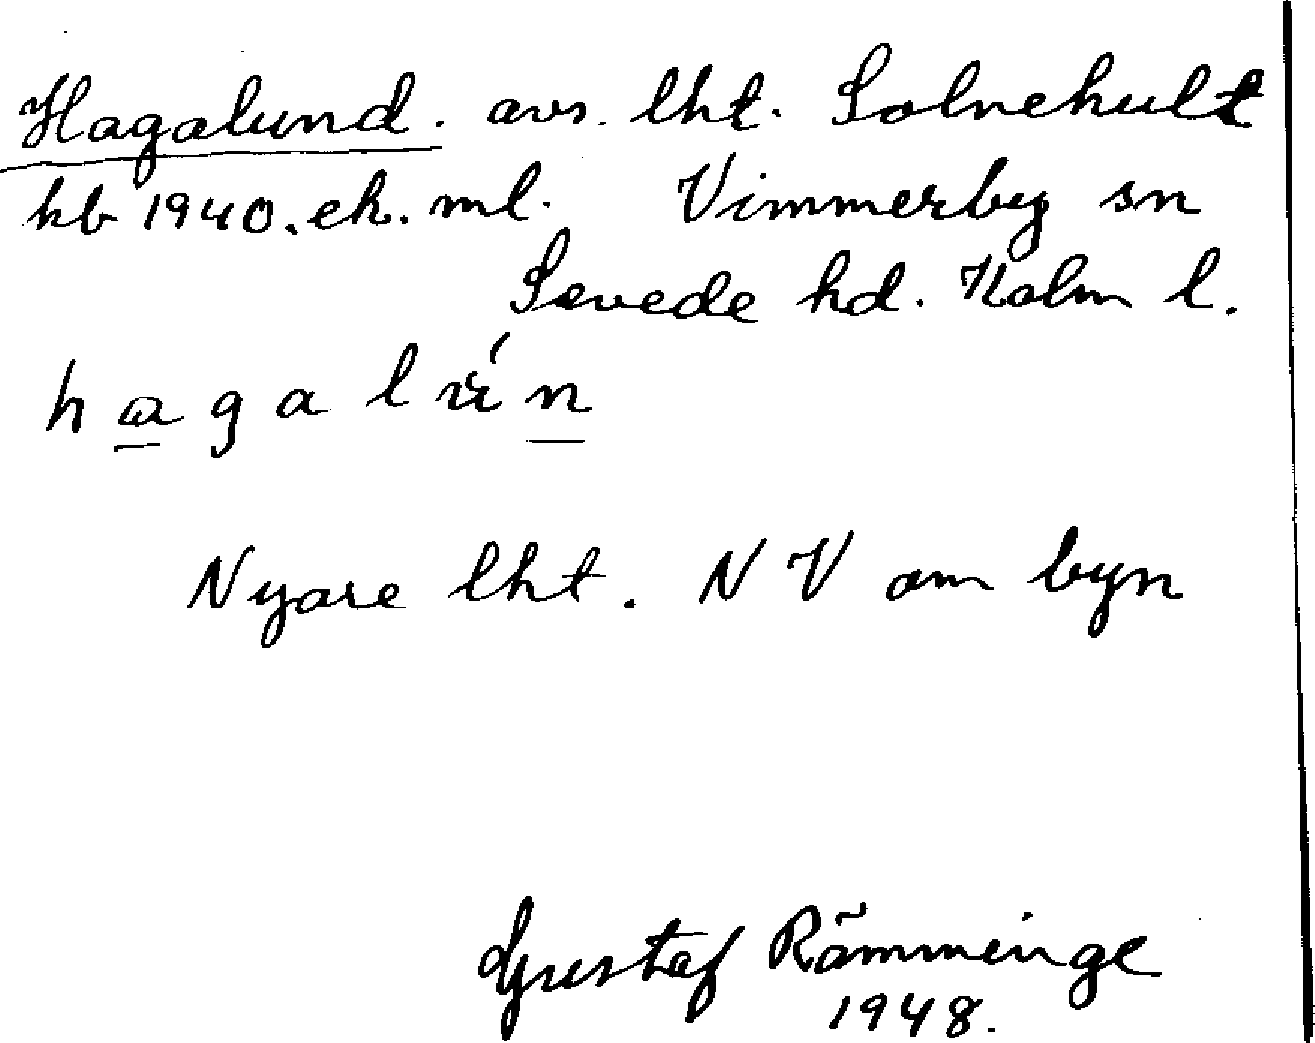 Hagalund. avs. lht. Solnehult
kb 1940. ek. ml. Vimmerby sn
Sevede hd. Kalm l.
hagalún
Nyare lht. NV om byn
Gustaf Rämminge
1948.